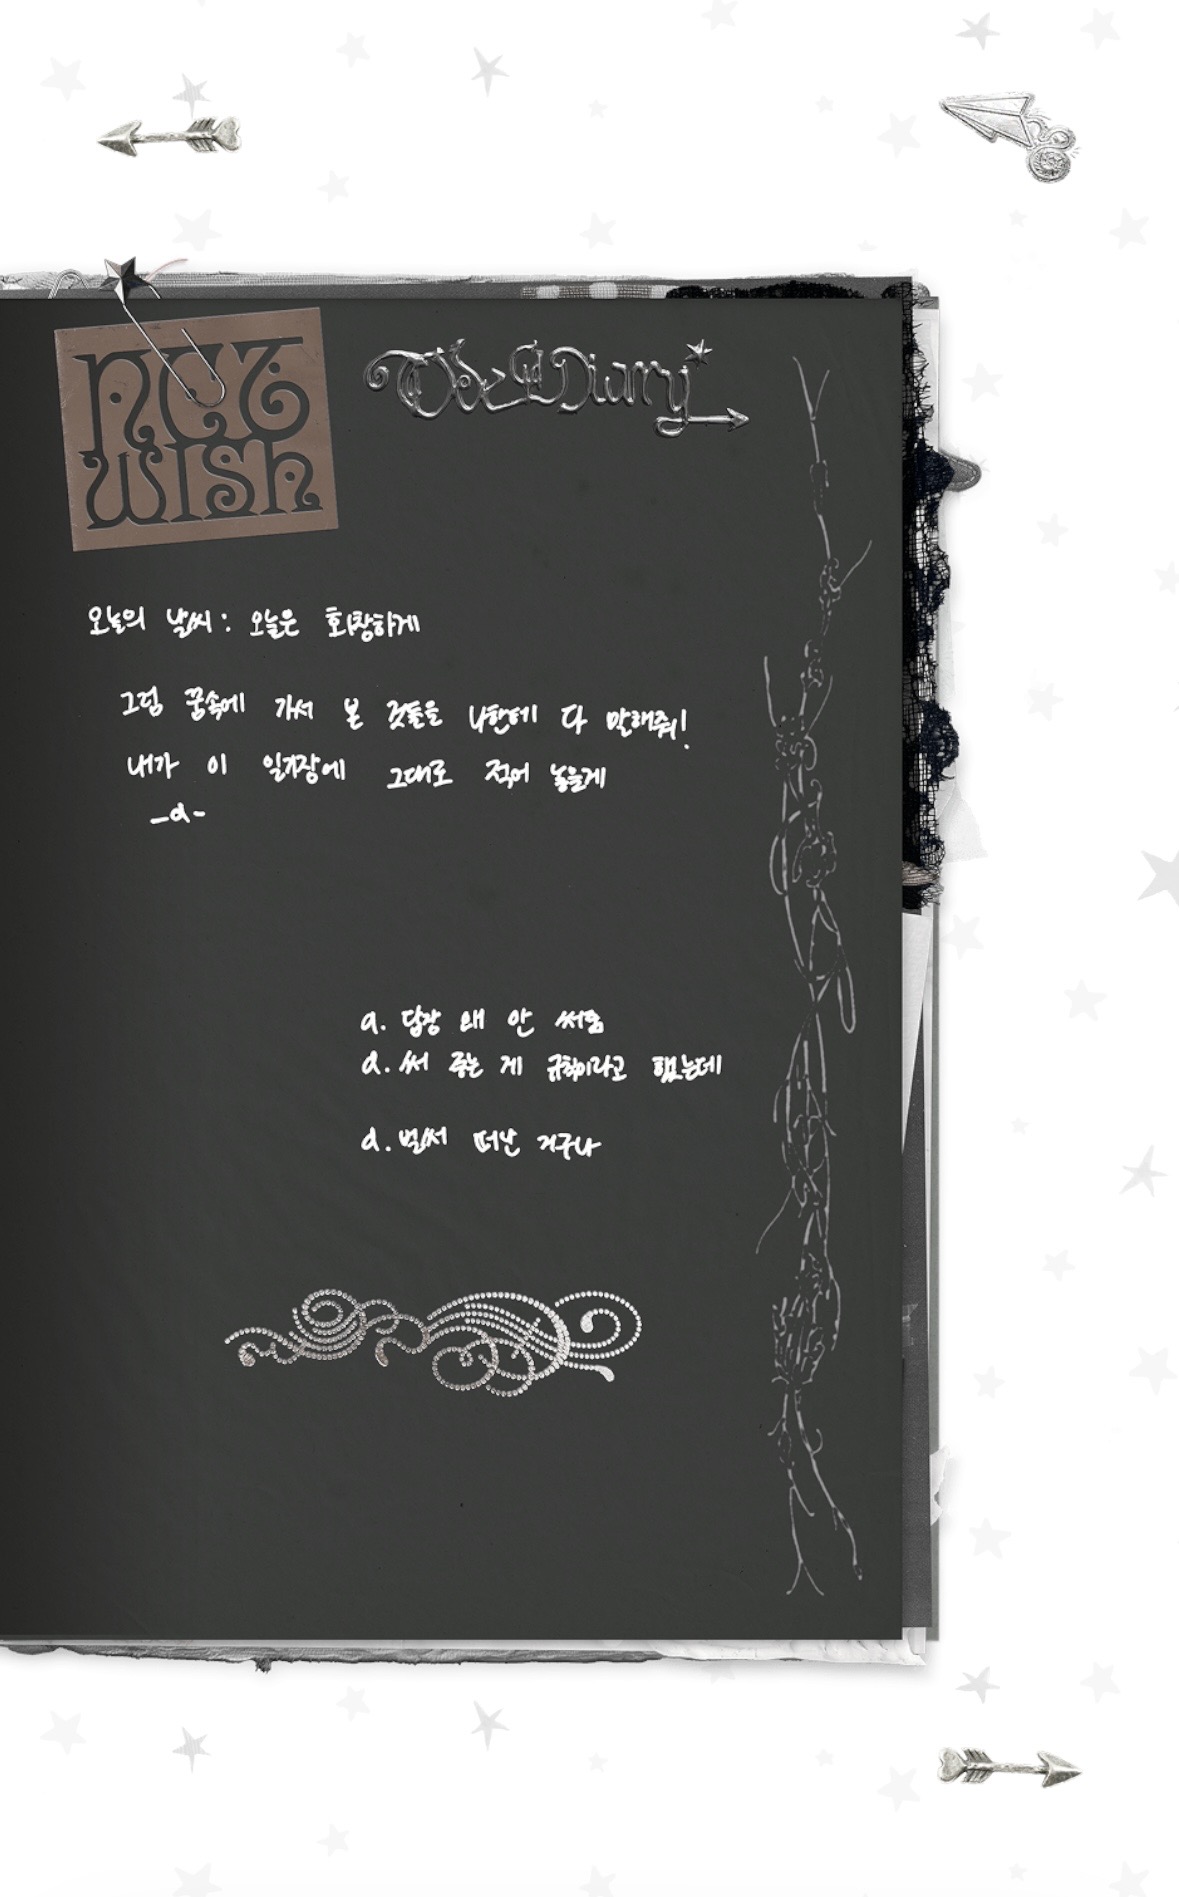 NCT
WISH
Ode Diary
오늘의 날씨: 오늘은 화창하게
그럼 꿈속에 가서 본 것들을 나한테 다 말해줘!
내가 이 일기장에 그대로 적어 놓을게
-a-
a. 답장 왜 안 써줌
a. 써 주는 게 규칙이라고 했는데
a. 벌써 떠난 거구나